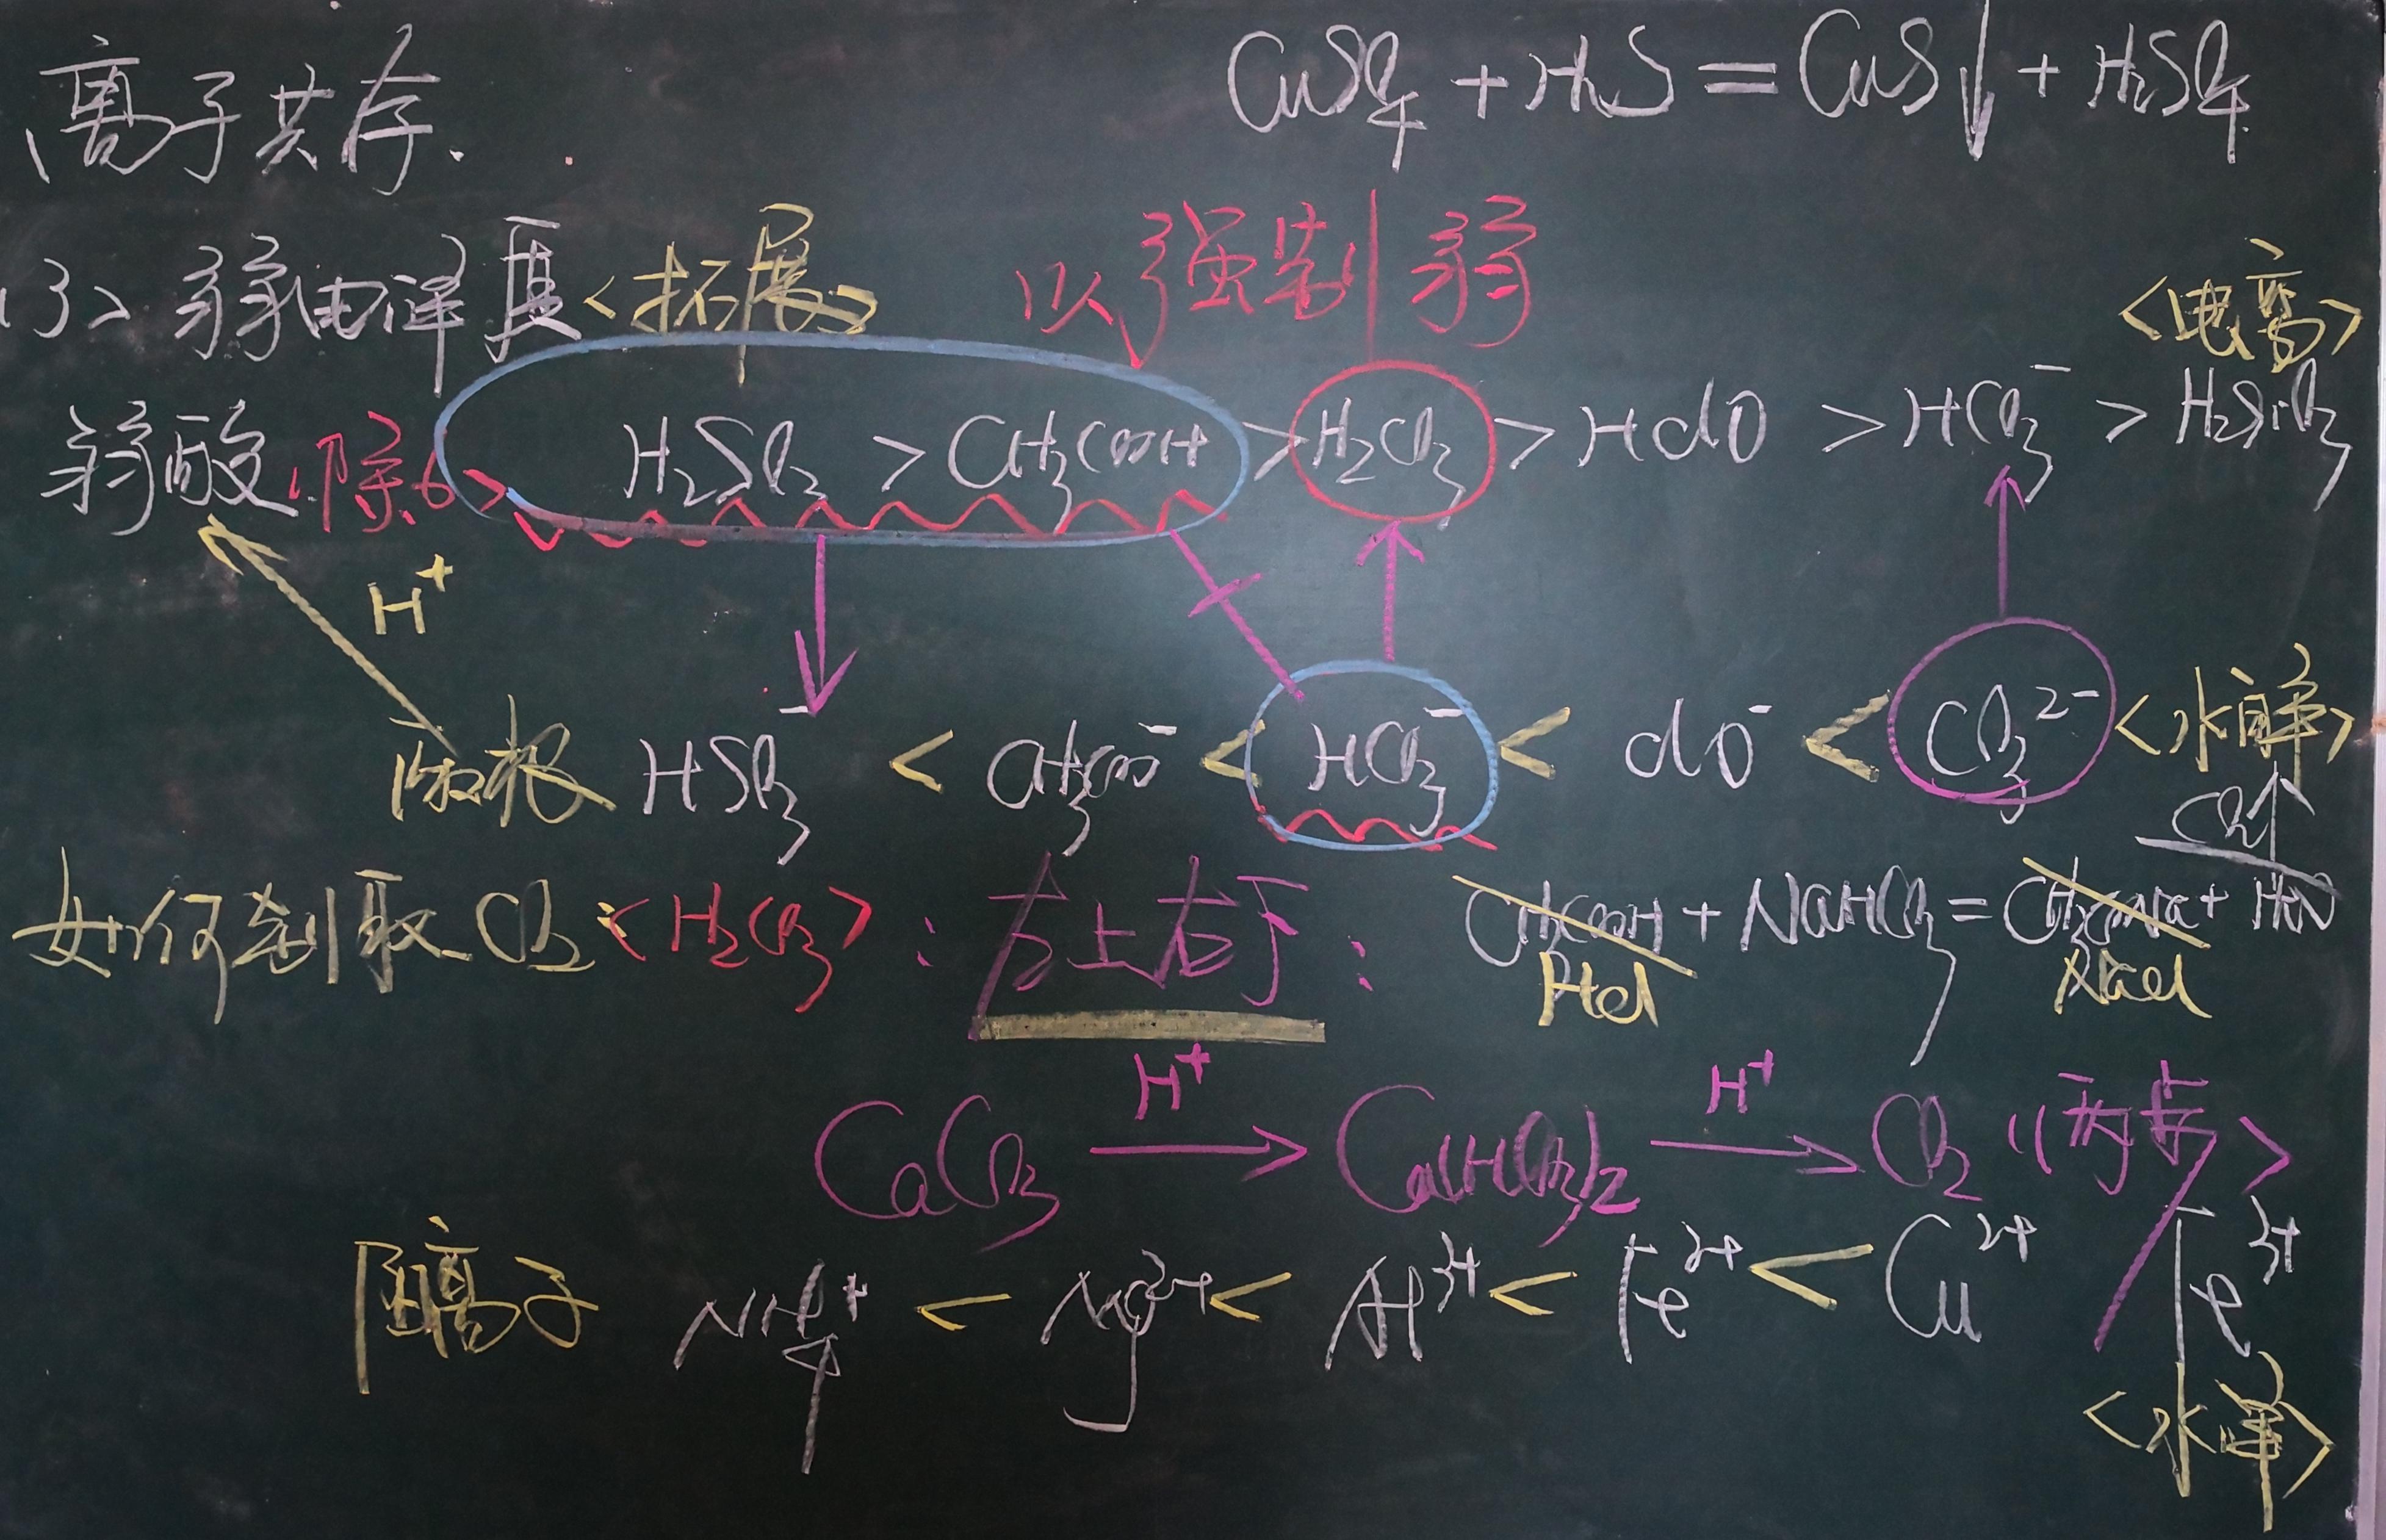 离子共存.
CuSO₄ + H₂S = CuS↓ + H₂SO₄
(3) 弱电译质 <拓展> 以强制弱
<电离>
弱酸 (除6> H₂SO₃ > CH₃COOH > H₂CO₃ > HClO > HCO₃⁻ > H₂SiO₃
H⁺
酸根 HSO₃⁻ < CH₃COO⁻ < HCO₃⁻ < ClO⁻ < CO₃²⁻ <水解>
CO₂↑
如何制取CO₂ <H₂CO₃> : 左上右下 : CH₃COOH + NaHCO₃ = CH₃COONa + H₂O
HCl NaCl
CaCO₃ —H⁺→ Ca(HCO₃)₂ —H⁺→ CO₂ (两步>
阳离子 NH₄⁺ < Mg²⁺ < Al³⁺ < Fe²⁺ < Cu²⁺ Fe³⁺
<水解>